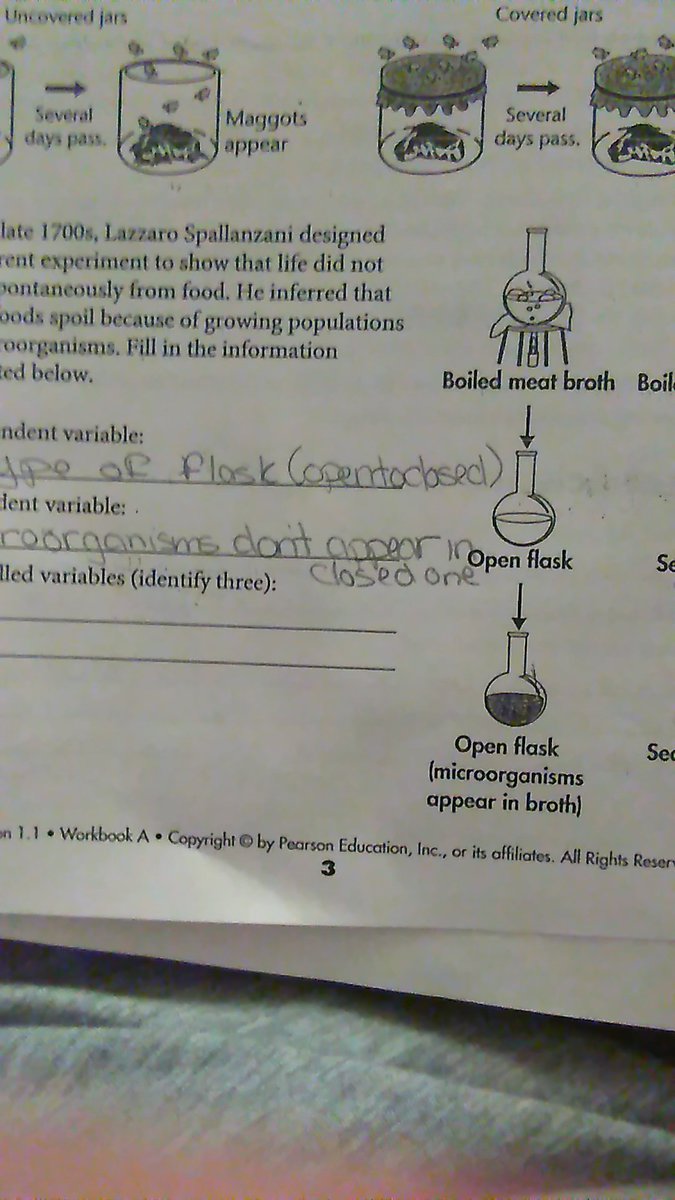 Uncovered jars
Covered jars
Several
days pass.
Maggots
appear
Several
days pass.
late 1700s, Lazzaro Spallanzani designed
rent experiment to show that life did not
pontaneously from food. He inferred that
oods spoil because of growing populations
roorganisms. Fill in the information
ted below.
Boiled meat broth
Boil
ndent variable:
ype of flask (opentoclosed)
dent variable:
roorganisms don't appear in
closed one
lled variables (identify three):
Open flask
Se
Open flask
(microorganisms
appear in broth)
Sea
on 1.1 • Workbook A • Copyright © by Pearson Education, Inc., or its affiliates. All Rights Reser
3